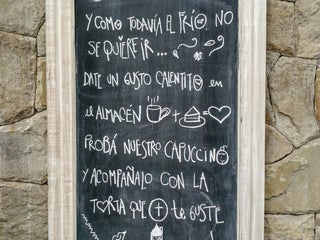 Y COMO TODAVÍA EL FRÍO, NO
SE QUIERE IR...
DATE UN GUSTO CALENTITO en
el ALMACÉN + =
PROBÁ NUESTRO CAPUCCINO
Y ACOMPAÑALO CON LA
TORTA QUE + te GUSTE